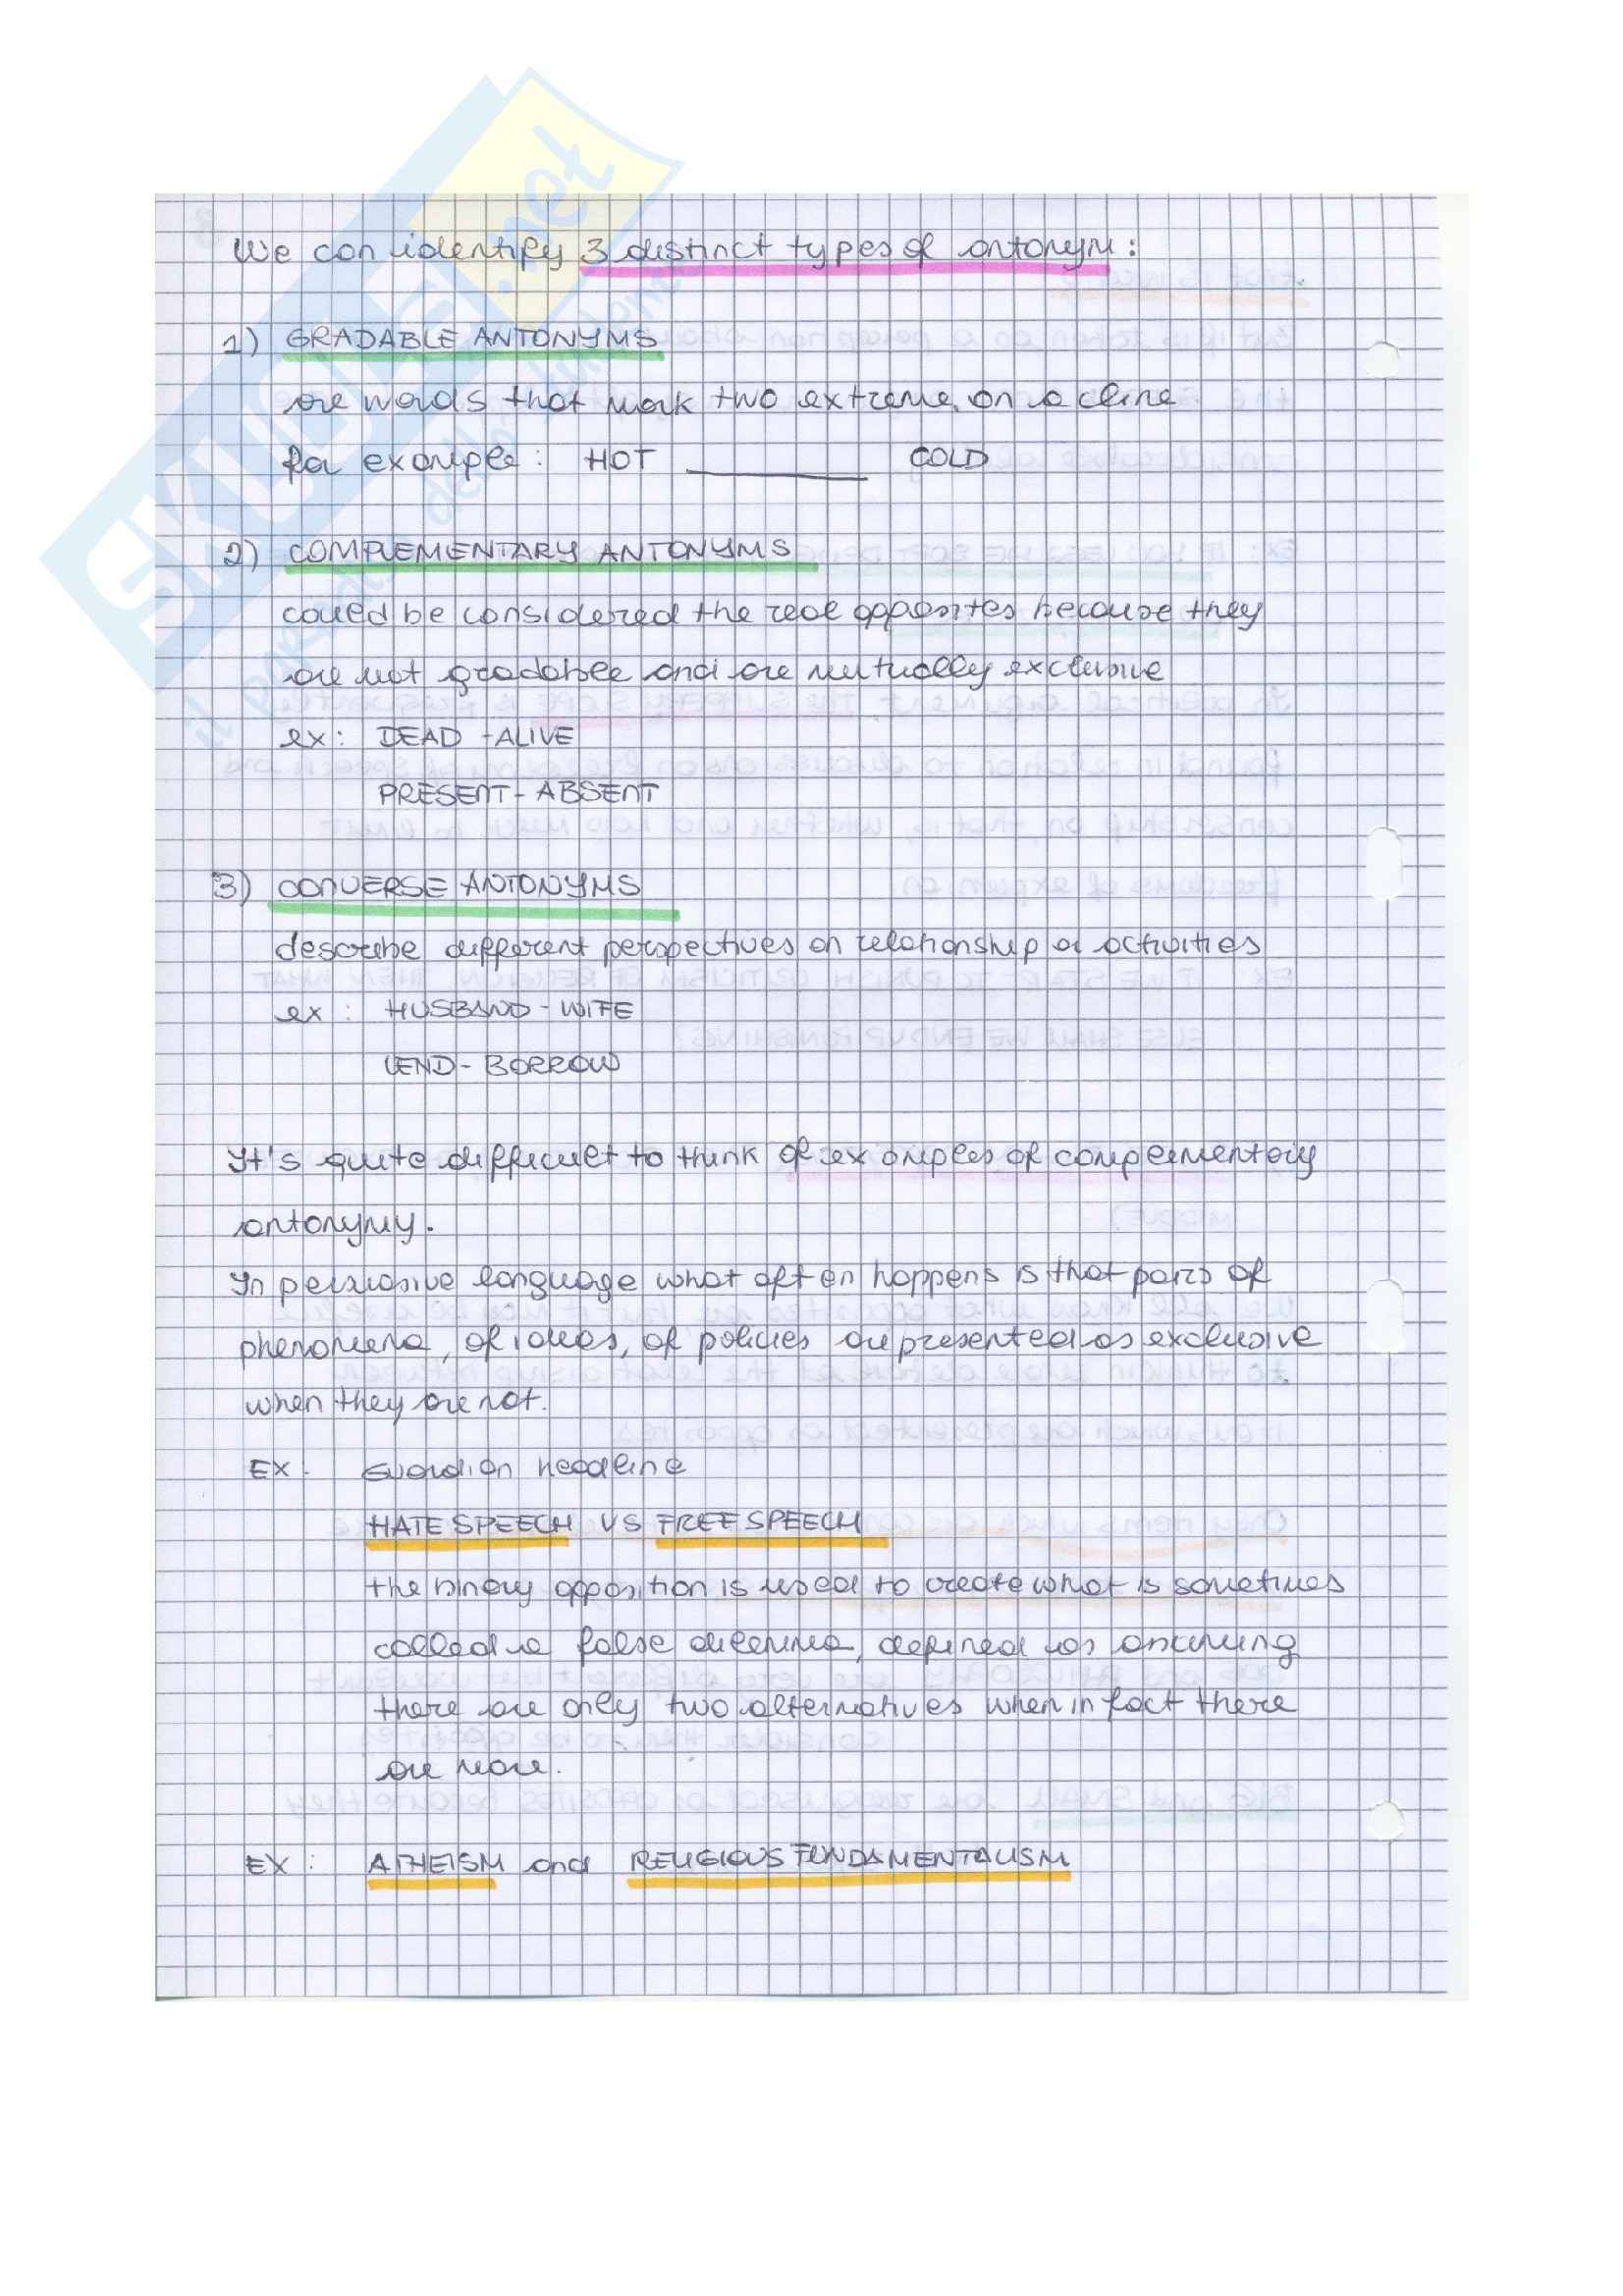 We can identify 3 distinct types of antonym:
1) GRADABLE ANTONYMS
are words that mark two extreme on a cline
for example: HOT ________ COLD
2) COMPLEMENTARY ANTONYMS
could be considered the real opposites because they
are not gradable and are mutually exclusive
ex: DEAD - ALIVE
PRESENT - ABSENT
3) CONVERSE ANTONYMS
describe different perspectives on relationship or activities
ex: HUSBAND - WIFE
LEND - BORROW
It's quite difficult to think of examples of complementary
antonymy.
In persuasive language what often happens is that pairs of
phenomena, of ideas, of policies are presented as exclusive
when they are not.
EX. Guardian headline
HATE SPEECH VS FREE SPEECH
the binary opposition is used to create what is sometimes
called a false dilemma, defined as assuming
there are only two alternatives when in fact there
are more.
EX: ATHEISM and RELIGIOUS FUNDAMENTALISM
SKUOLA.net